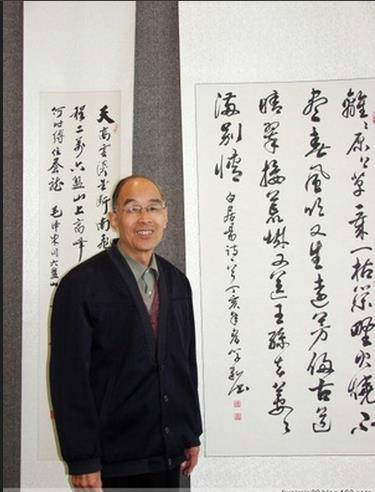 離〻原上草一歲一枯榮野火燒不
盡春風吹又生遠芳侵古道
晴翠接荒城又送王孫去萋〻
滿別情
白居易詩一首丁亥年
天高雲淡望斷南飛
程二萬六盤山上高峰
何時縛住蒼龍
毛澤東 六盤山